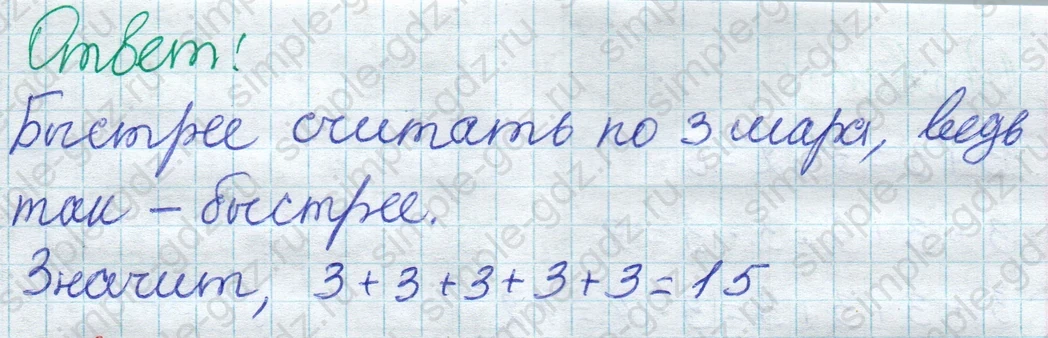 Ответ!
Быстрее считать по 3 шара, ведь
так – быстрее.
Значит, 3+3+3+3+3=15
simple-gdz.ru